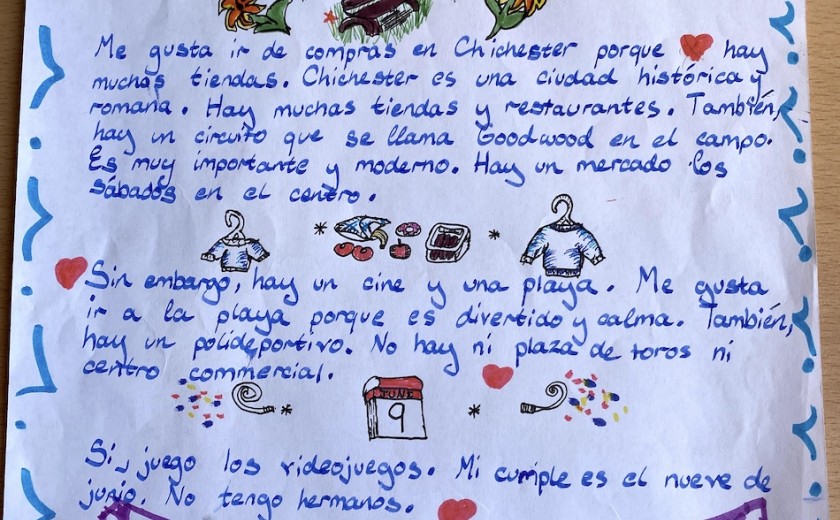 Me gusta ir de compras en Chichester porque hay
muchas tiendas. Chichester es una ciudad histórica y
romana. Hay muchas tiendas y restaurantes. También,
hay un circuito que se llama Goodwood en el campo.
Es muy importante y moderno. Hay un mercado los
sábados en el centro.
Sin embargo, hay un cine y una playa. Me gusta
ir a la playa porque es divertido y calma. También,
hay un polideportivo. No hay ni plaza de toros ni
centro commercial.
JUNE
9
Si, juego los videojuegos. Mi cumple es el nueve de
junio. No tengo hermanos.